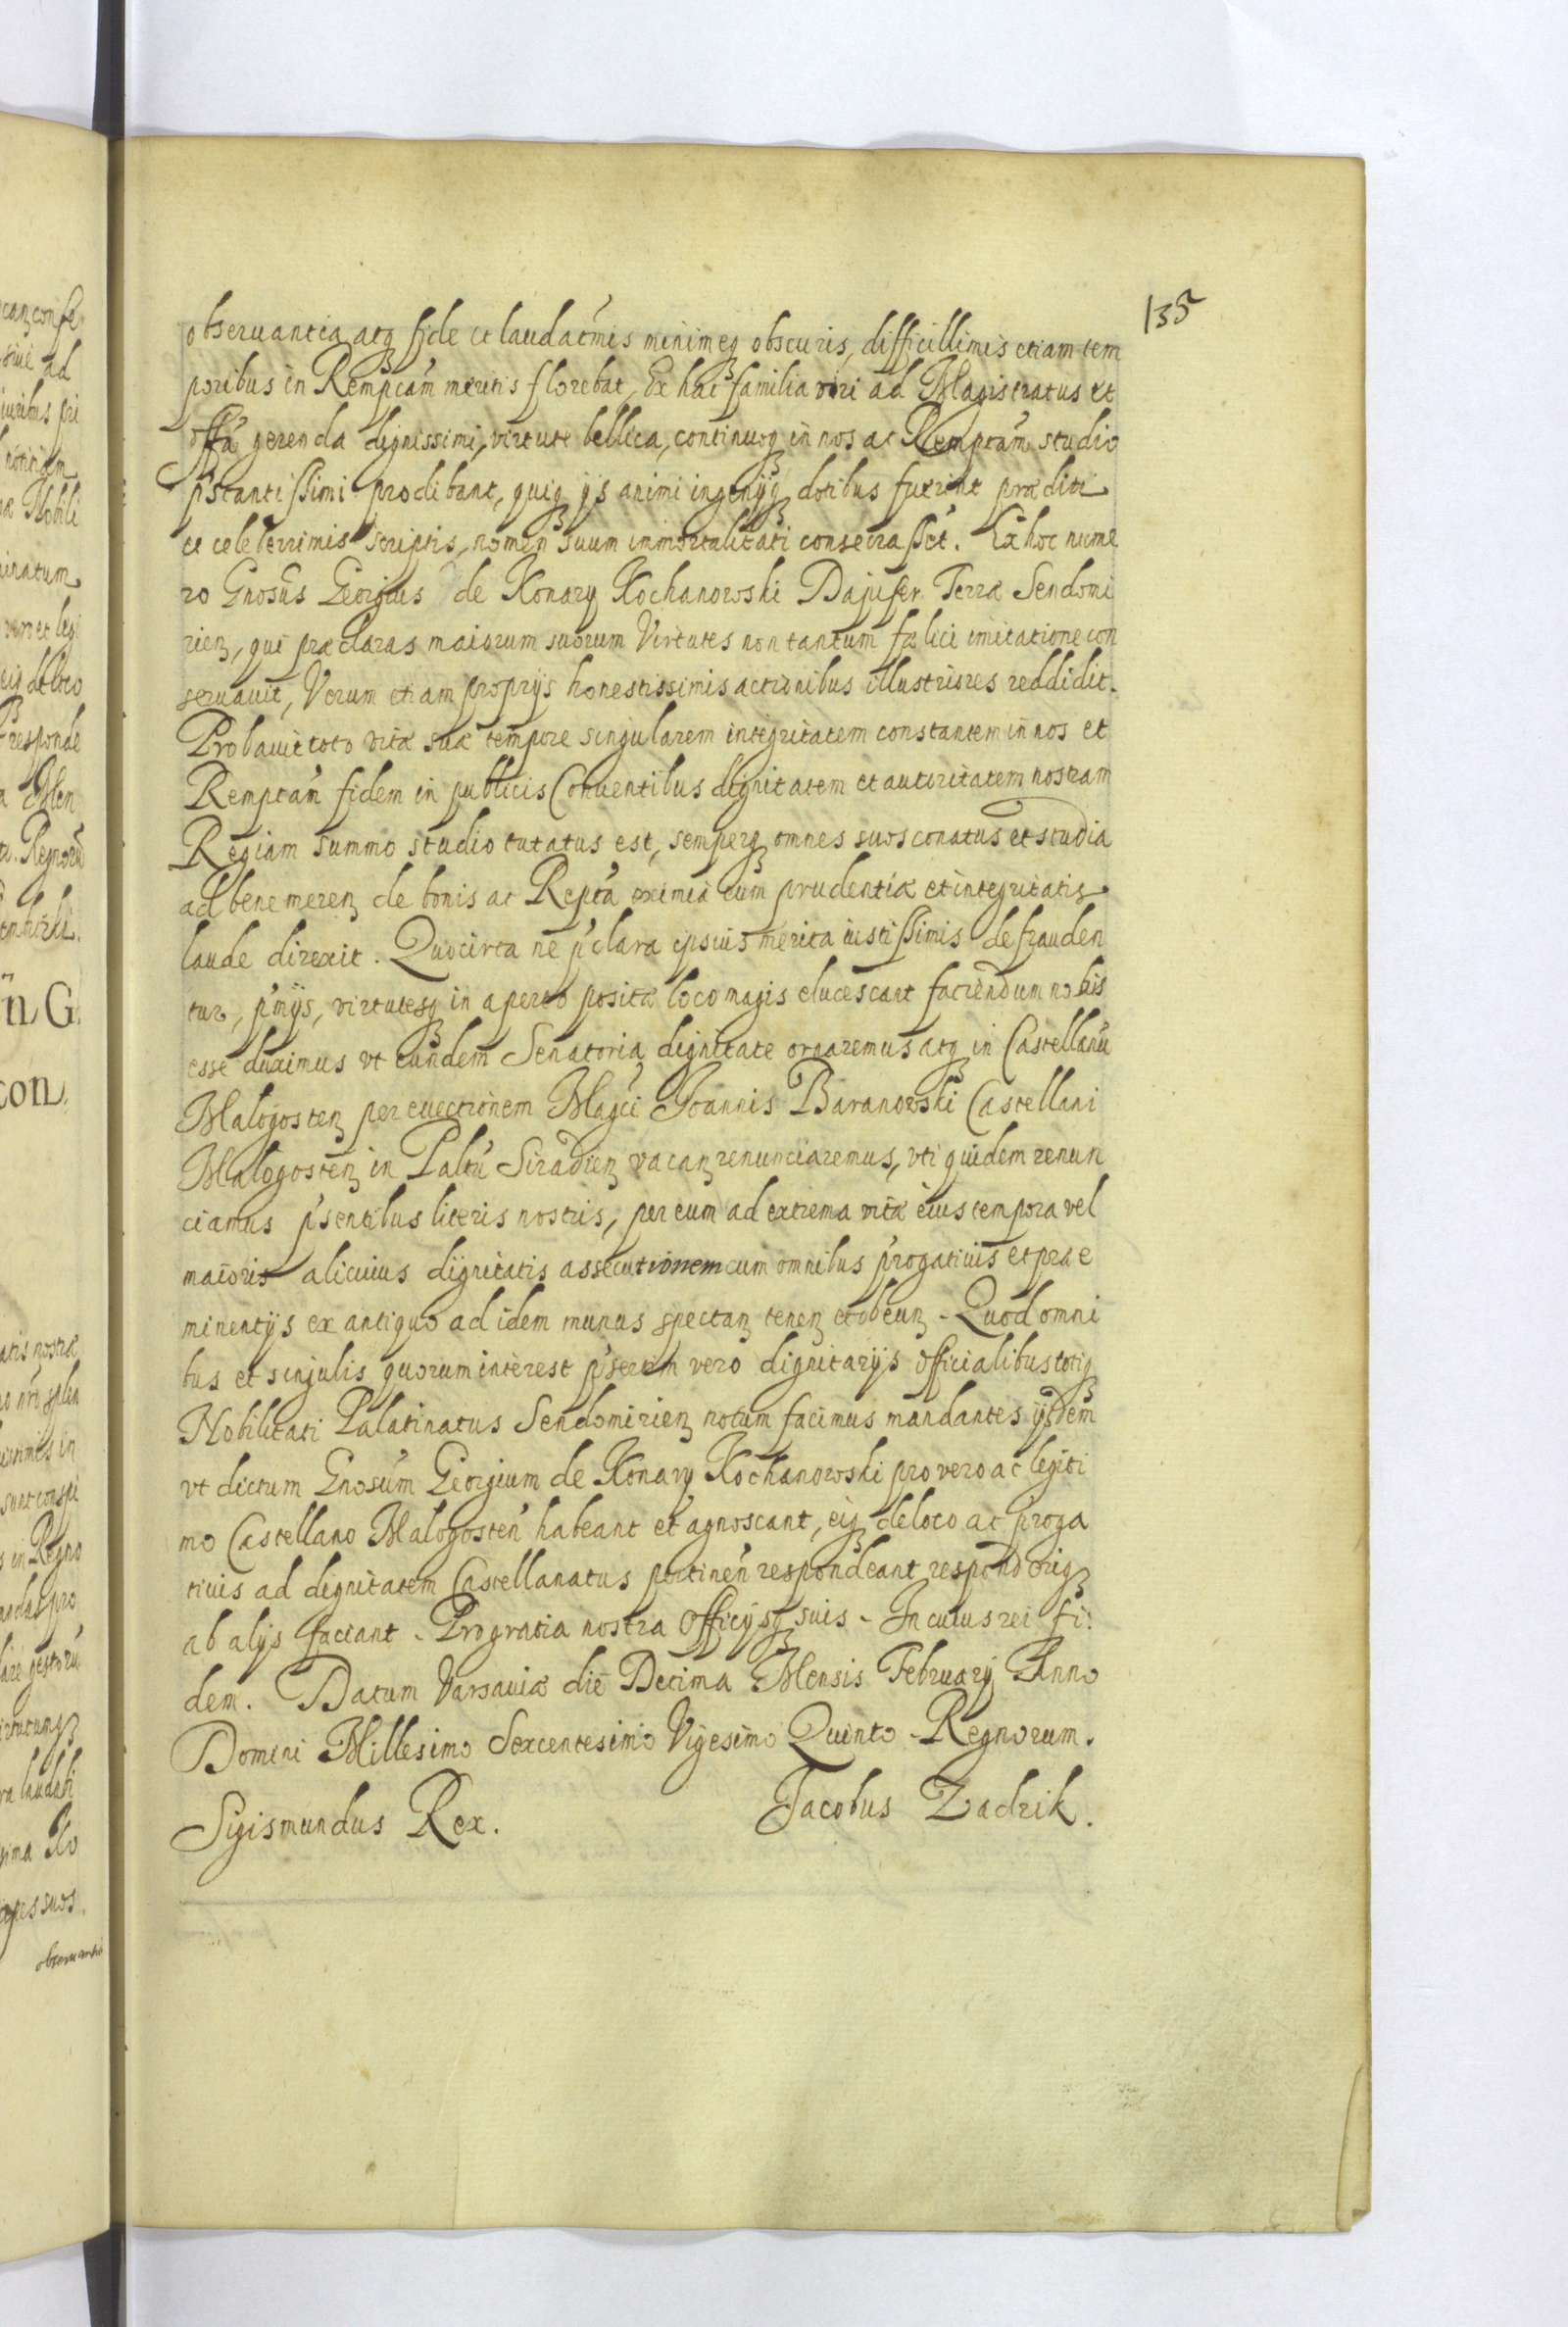 135
obseruantia atq fide et laudatmis minimeq obscuris, difficillimis etiam tem
poribus in Rempcam meritis florebat, Ex hac familia viri ad Magistratus et
offa gerenda dignissimi, virtute bellica, continuoq in nos ac Rempcam studio
pstantissimi prodibant, quiq ys animi ingenijq dotibus fuerint præditi
et celeberrimis scriptis, nomen suum immortalitati consecrasset. Ex hoc nume
ro Gnosus Georgius de Konary Kochanowski Dapifer Terræ Sendomi
rien, qui præclaras maiorum suorum Virtutes non tantum fælici imitatione con
seruauit, Verum etiam proprijs honestissimis actionibus illustriores reddidit.
Probauit toto vitæ suæ tempore singularem integritatem constantem in nos et
Rempcam fidem in publicis Conuentibus dignitatem et autoritatem nostram
Regiam summo studio tutatus est, semperq omnes suos conatus et studia
ad bene meren de bonis ac Repca eximia cum prudentiæ et integritatis
laude direxit. Quocirca ne pclara ipsius merita iustissimis defrauden
tur, pmijs, virtutesq in aperto positæ loco magis elucescant faciendum nobis
esse duximus vt eundem Senatoria dignitate ornaremus atq in Castellanu
Malogosten per euectionem Magci Joannis Baranowski Castellani
Malogosten in Paltu Siradien vacan renunciaremus, vti quidem renun
ciamus psentibus literis nostris, per eum ad extrema vitæ eius tempora vel
maioris alicuius dignitatis assecutionem cum omnibus progatiuis et præe
minentijs ex antiquo ad idem munus spectan tenen et obeun. Quod omni
bus et singulis quorum interest psertim vero dignitarijs Officialibus totiq
Nobilitati Palatinatus Sendomirien notum facimus mandantes ijsdem
vt dictum Gnosum Georgium de Konary Kochanowski pro vero ac legiti
mo Castellano Malogosten habeant et agnoscant, eiq de loco ac proga
tiuis ad dignitatem Castellanatus ptinen respondeant responderiq
ab alijs faciant. Pro gratia nostra Officijsq suis. In cuius rei fi:
dem. Datum Varsauiæ die Decima Mensis February Anno
Domini Millesimo Sexcentesimo Vigesimo Quinto. Regnorum.
Sigismundus Rex. Jacobus Zadzik.